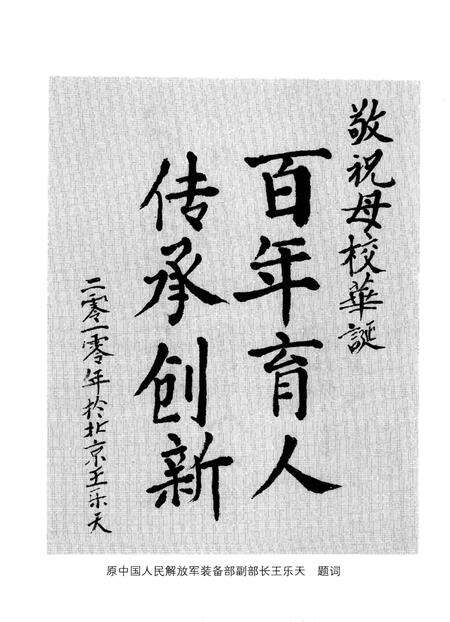 敬祝母校華誕
百年育人
传承创新
二零一零年於北京王乐天
原中国人民解放军装备部副部长王乐天　题词